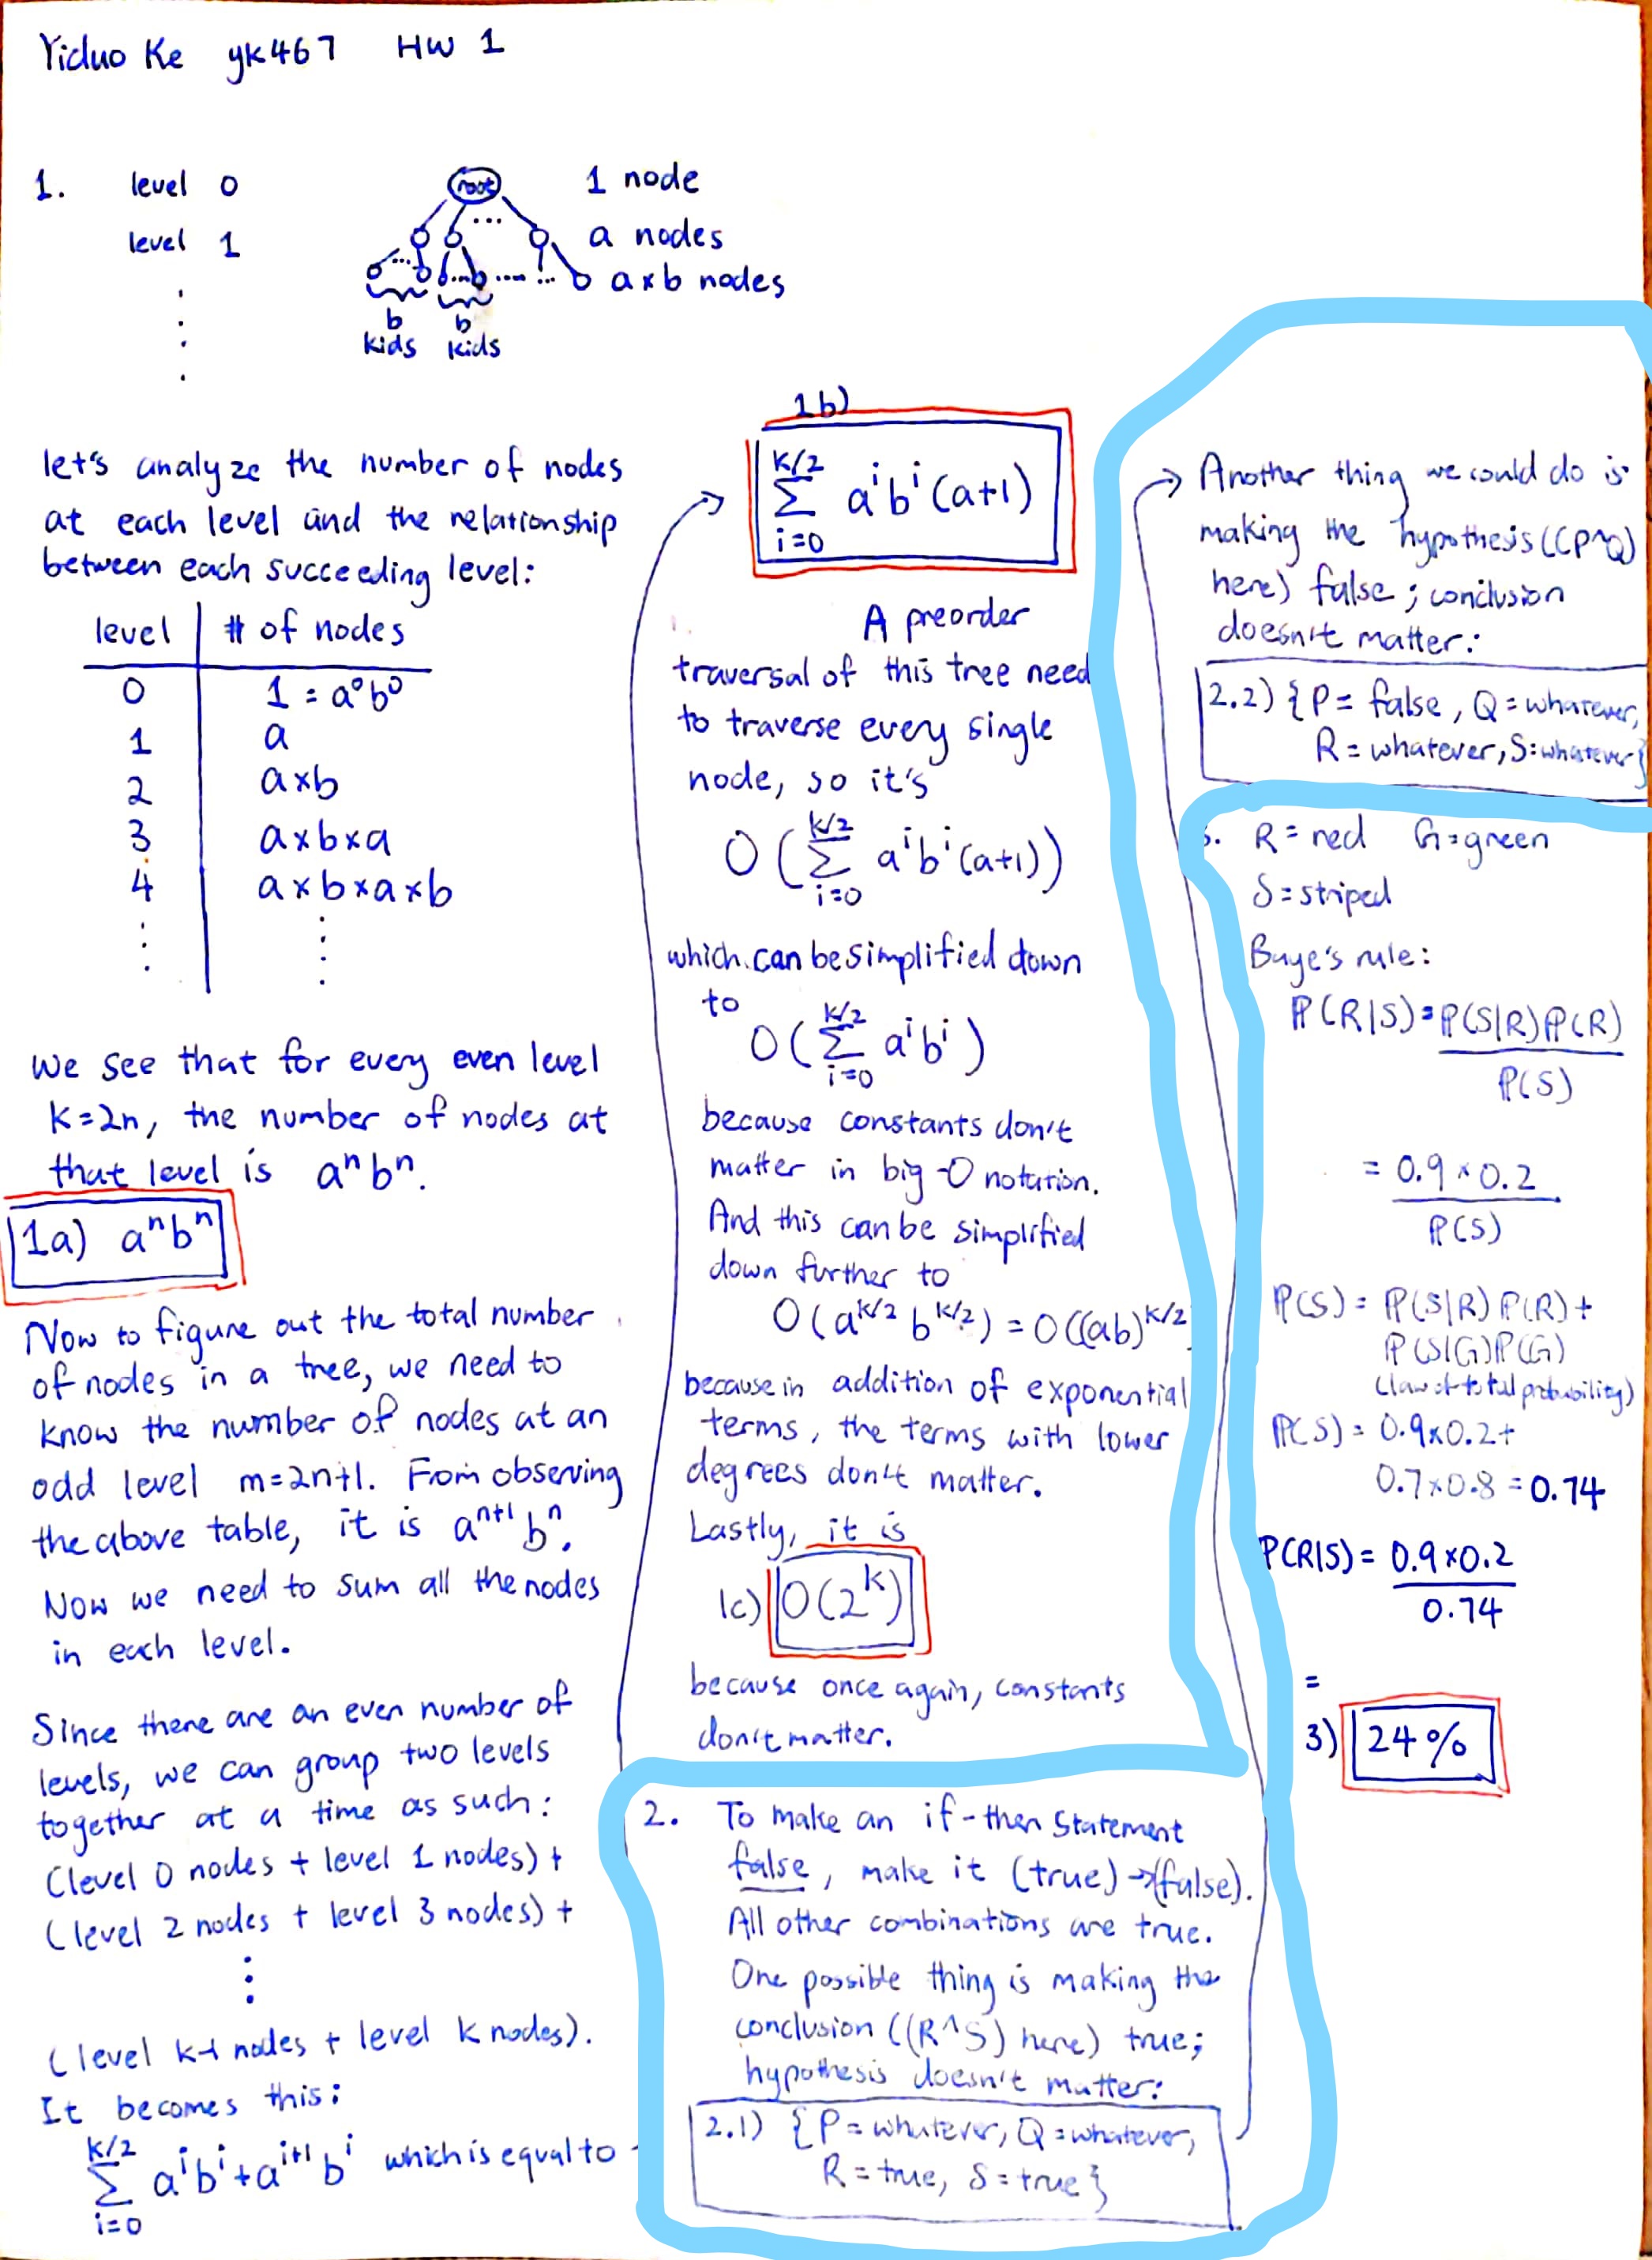 Yiduo Ke yk467 HW 1
1. level 0 root 1 node
level 1 ... a nodes
... ... .... ... a x b nodes
b b
kids kids
let's analyze the number of nodes
at each level and the relationship
between each succeeding level:
level # of nodes
0 1 = a⁰b⁰
1 a
2 a x b
3 a x b x a
4 a x b x a x b
we see that for every even level
k=2n, the number of nodes at
that level is aⁿbⁿ.
1a) aⁿbⁿ
Now to figure out the total number
of nodes in a tree, we need to
know the number of nodes at an
odd level m=2n+1. From observing
the above table, it is aⁿ⁺¹bⁿ.
Now we need to sum all the nodes
in each level.
Since there are an even number of
levels, we can group two levels
together at a time as such:
(level 0 nodes + level 1 nodes) +
(level 2 nodes + level 3 nodes) +
(level k-1 nodes + level k nodes).
It becomes this:
k/2
Σ aⁱbⁱ+aⁱ⁺¹bⁱ which is equal to
i=0
1b)
k/2
Σ aⁱbⁱ(a+1)
i=0
A preorder
traversal of this tree need
to traverse every single
node, so it's
k/2
O(Σ aⁱbⁱ(a+1))
i=0
which can be simplified down
to
k/2
O(Σ aⁱbⁱ)
i=0
because constants don't
matter in big-O notation.
And this can be simplified
down further to
O(a^k/2 b^k/2) = O((ab)^k/2
because in addition of exponential
terms, the terms with lower
degrees don't matter.
Lastly, it is
1c) O(2^k)
because once again, constants
don't matter.
2. To make an if-then statement
false, make it (true)→(false).
All other combinations are true.
One possible thing is making the
conclusion ((R^S) here) true;
hypothesis doesn't matter:
2.1) {P = whatever, Q = whatever,
R = true, S = true}
→ Another thing we could do is
making the hypothesis ((P^Q)
here) false; conclusion
doesn't matter:
2.2) {P = false, Q = whatever,
R = whatever, S = whatever}
3. R = red G = green
S = striped
Baye's rule:
P(R|S) = P(S|R)P(R)
P(S)
= 0.9 x 0.2
P(S)
P(S) = P(S|R) P(R) +
P(S|G)P(G)
(law of total probability)
P(S) = 0.9x0.2+
0.7x0.8 = 0.74
P(R|S) = 0.9x0.2
0.74
=
3) 24%